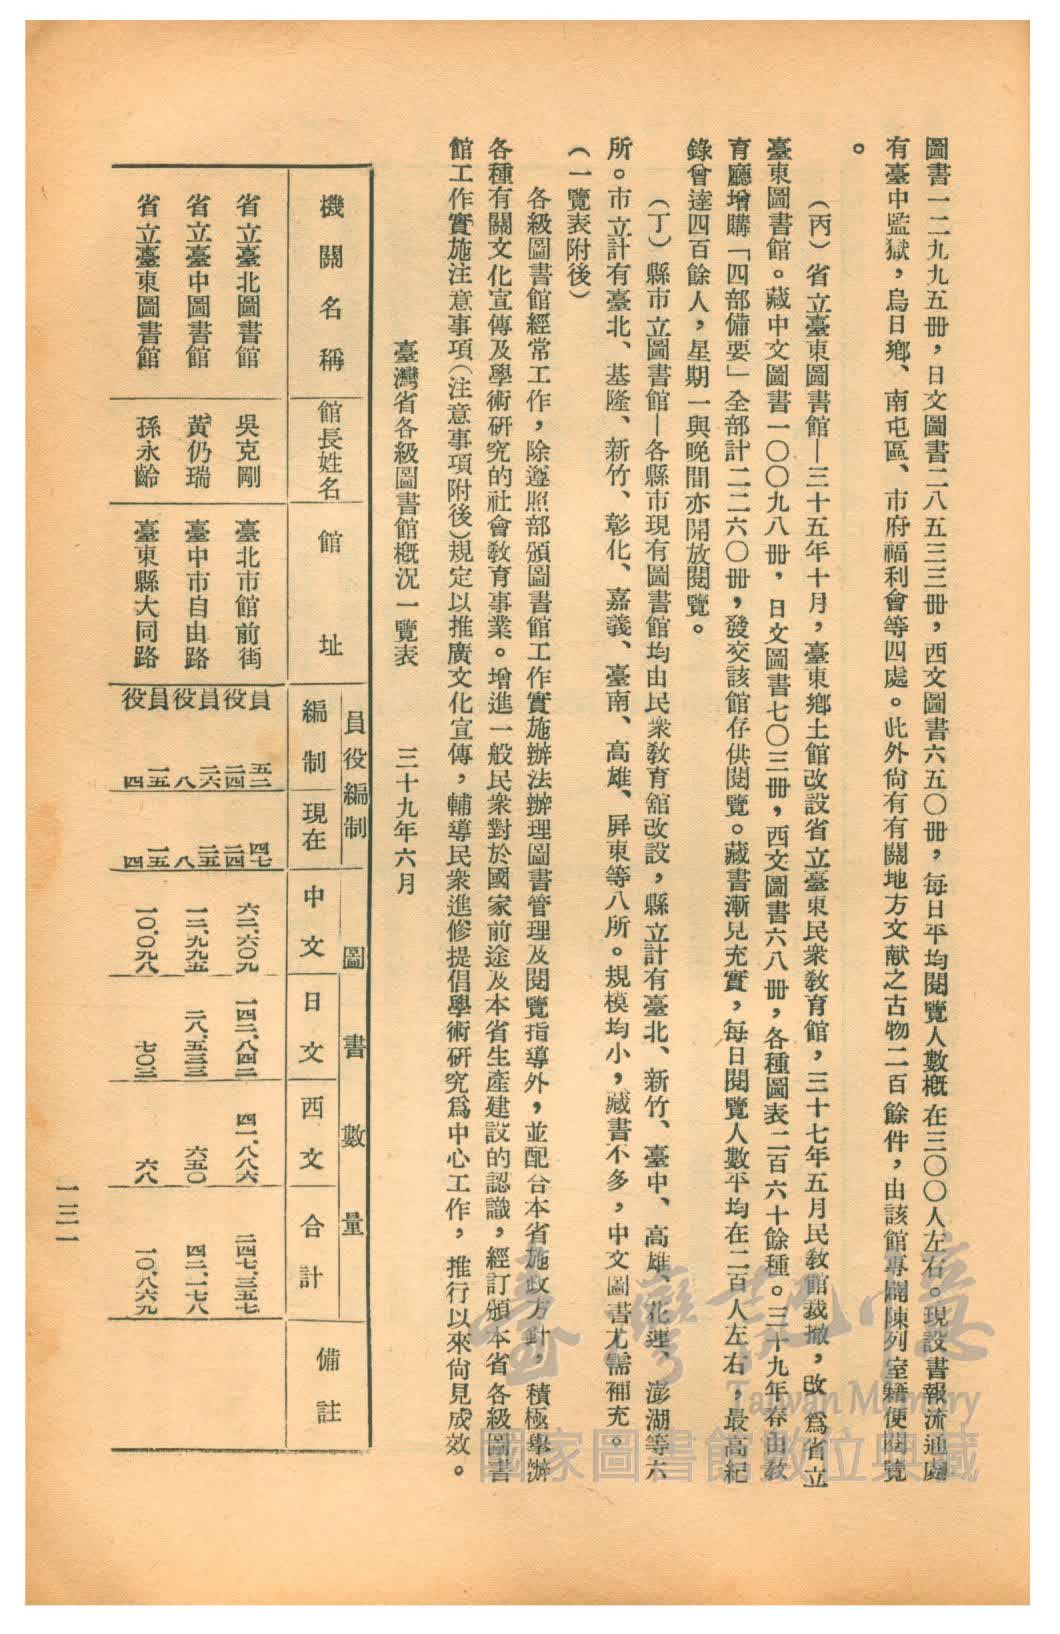 圖書一二九九五冊，日文圖書二八五三三冊，西文圖書六五〇冊，每日平均閱覽人數概在三〇〇人左右。現設書報流通處
有臺中監獄，烏日鄉、南屯區、市府福利會等四處。此外尚有有關地方文献之古物二百餘件，由該館專闢陳列室藉便閱覽
。
（丙）省立臺東圖書館—三十五年十月，臺東鄉土館改設省立臺東民衆教育館，三十七年五月民教館裁撤，改爲省立
臺東圖書館。藏中文圖書一〇〇九八冊，日文圖書七〇三冊，西文圖書六八冊，各種圖表二百六十餘種。三十九年春由教
育廳增購「四部備要」全部計二二六〇冊，發交該館存供閱覽。藏書漸見充實，每日閱覽人數平均在二百人左右，最高紀
錄曾達四百餘人，星期一與晚間亦開放閱覽。
（丁）縣市立圖書館—各縣市現有圖書館均由民衆教育館改設，縣立計有臺北、新竹、臺中、高雄、花蓮、澎湖等六
所。市立計有臺北、基隆、新竹、彰化、嘉義、臺南、高雄、屏東等八所。規模均小，藏書不多，中文圖書尤需補充。
（一覽表附後）
各級圖書館經常工作，除遵照部頒圖書館工作實施辦法辦理圖書管理及閱覽指導外，並配合本省施政方針，積極舉辦
各種有關文化宣傳及學術研究的社會教育事業。增進一般民衆對於國家前途及本省生產建設的認識，經訂頒本省各級圖書
館工作實施注意事項（注意事項附後）規定以推廣文化宣傳，輔導民衆進修提倡學術研究爲中心工作，推行以來尚見成效。
臺灣省各級圖書館概況一覽表　三十九年六月
機關名稱　館長姓名　館址　員役編制　編制　現在　圖書數量　中文　日文　西文　合計　備註
省立臺北圖書館　吳克剛　臺北市館前街　員　五二　四七　六二、六〇九　一四二、八四二　四一、八八六　二四七、三五七
役　二四　二四
省立臺中圖書館　黃仍瑞　臺中市自由路　員　二六　二五　一二、九九五　二八、五三三　六五〇　四二、一七八
役　八　八
省立臺東圖書館　孫永齡　臺東縣大同路　員　一五　一五　一〇、〇九八　七〇三　六八　一〇、八六九
役　四　四
一三一
臺灣記憶
Taiwan Memory
國家圖書館數位典藏